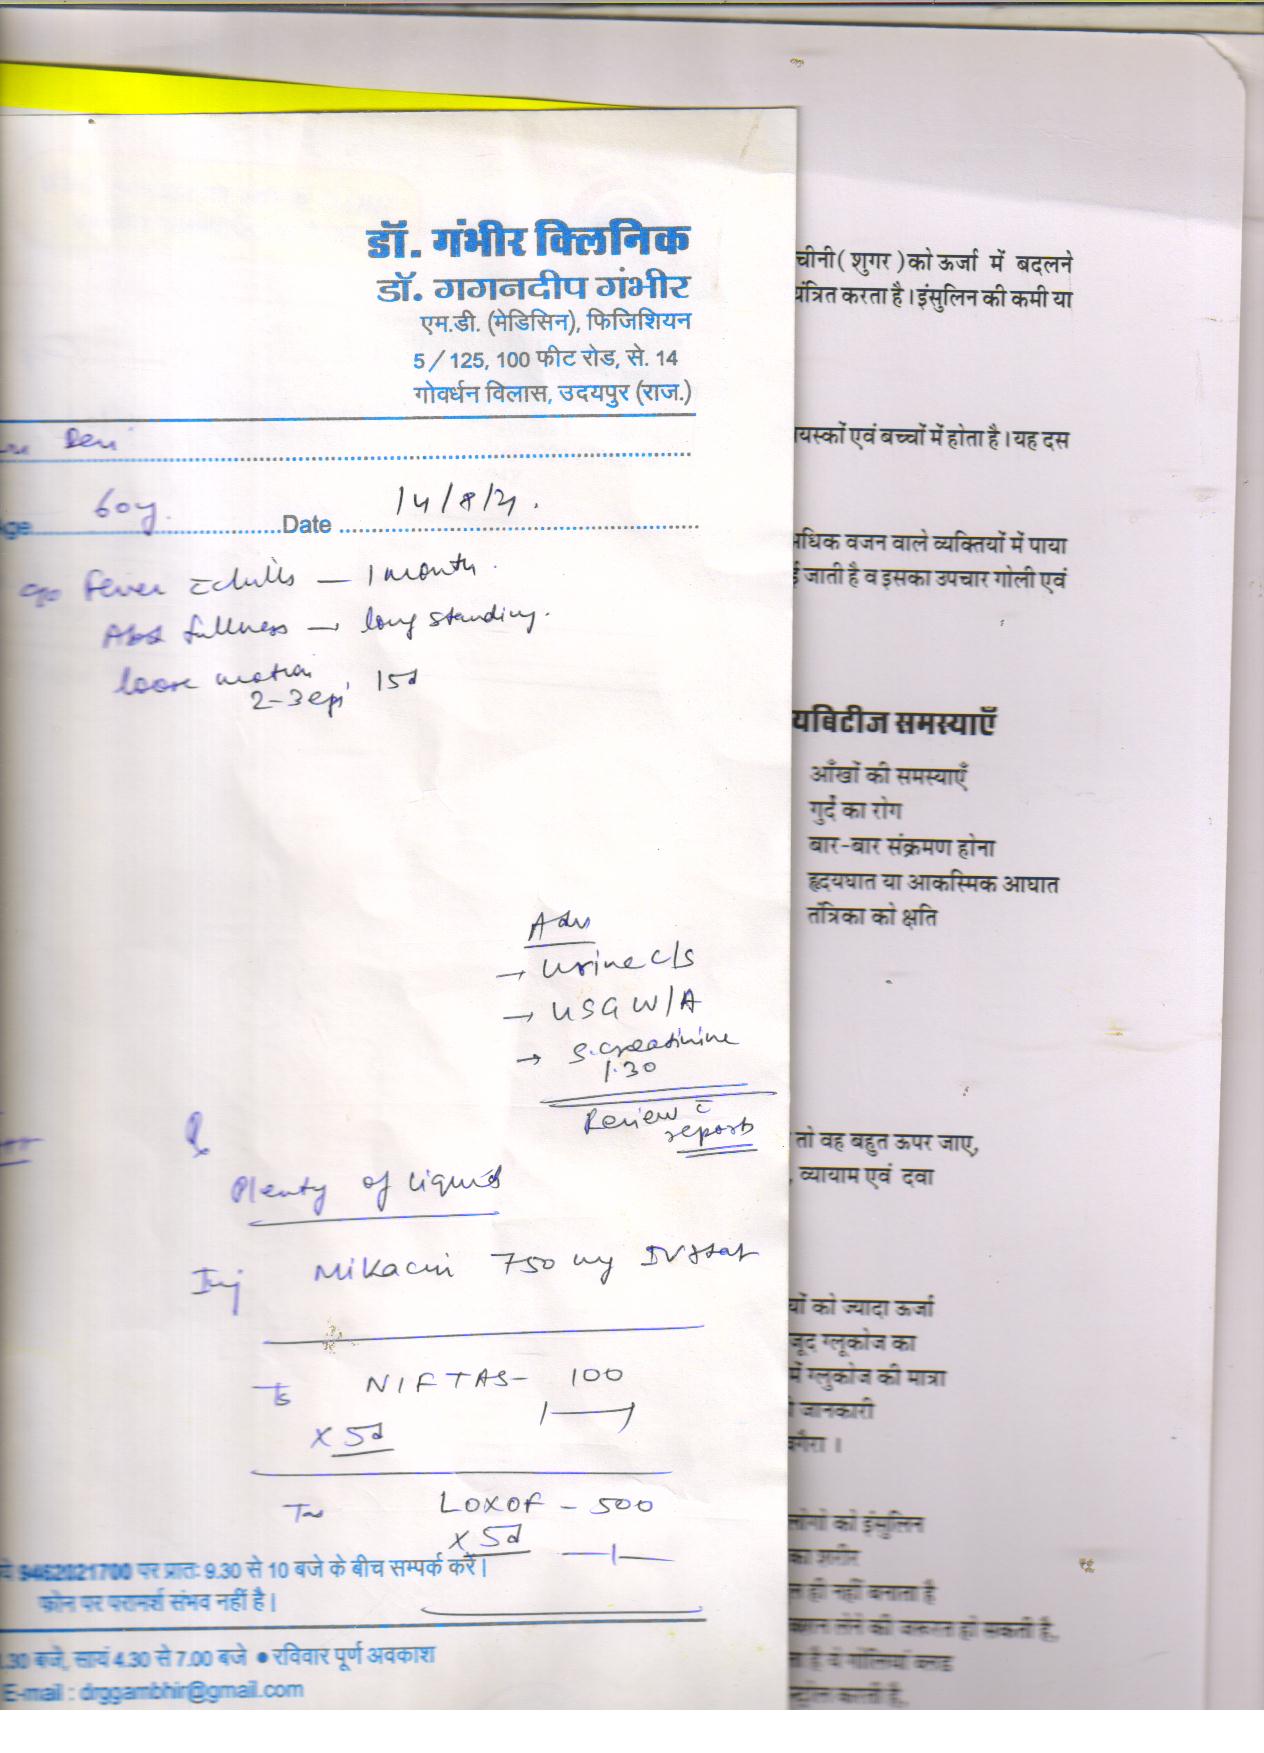 डॉ. गंभीर क्लिनिक
डॉ. गगनदीप गंभीर
एम.डी. (मेडिसिन), फिजिशियन
5/125, 100 फीट रोड, से. 14
गोवर्धन विलास, उदयपुर (राज.)
Devi
60y. Date 14/8/21.
c/o Fever c chills — 1 month.
Abd fullness → long standing.
loose motion 15d
2-3 epi
Adv
→ Urine c/s
→ USG W/A
→ S. creatinine
1.30
Review c
reports
Plenty of liquids
Inj Mikacin 750 mg IV stat
NIFTAS- 100
x 5d
LOXOF - 500
x 5d
9462021700 पर प्रातः 9.30 से 10 बजे के बीच सम्पर्क करें।
फोन पर परामर्श संभव नहीं है।
.30 बजे, सायं 4.30 से 7.00 बजे ● रविवार पूर्ण अवकाश
E-mail : drggambhir@gmail.com
चीनी ( शुगर ) को ऊर्जा में बदलने
यंत्रित करता है। इंसुलिन की कमी या
यस्कों एवं बच्चों में होता है। यह दस
अधिक वजन वाले व्यक्तियों में पाया
ई जाती है व इसका उपचार गोली एवं
यबिटीज समस्याएँ
आँखों की समस्याएँ
गुर्दे का रोग
बार-बार संक्रमण होना
हृदयघात या आकस्मिक आघात
तंत्रिका को क्षति
तो वह बहुत ऊपर जाए,
, व्यायाम एवं दवा
यों को ज्यादा ऊर्जा
जूद ग्लूकोज का
में ग्लुकोज की मात्रा
जानकारी
वगैरा ।
लोगों को इंसुलिन
का शरीर
ही नहीं बनाता है
लेने की जरूरत हो सकती है,
है ये गोलियां ब्लड
कंट्रोल करती है,